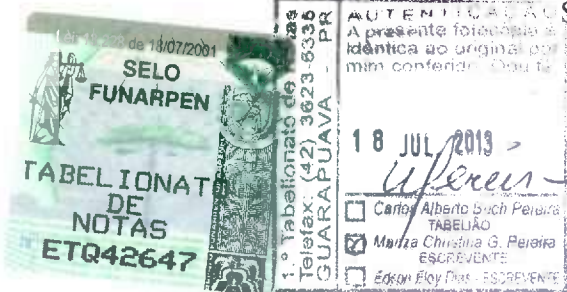 de 18/07/2001
SELO
FUNARPEN
TABELIONAT
DE
NOTAS
ETQ42647
1.º Tabelionato de
Telefax: (42) 3623-6335
GUARAPUAVA - PR
AUTENTICAÇÃO
A presente fotocópia é
idêntica ao original por
mim conferido. Dou fé
18 JUL 2013
Carlos Alberto Pereira
TABELIÃO
Mariza Christina G. Pereira
ESCREVENTE
Edson Eloy Dias - ESCREVENTE